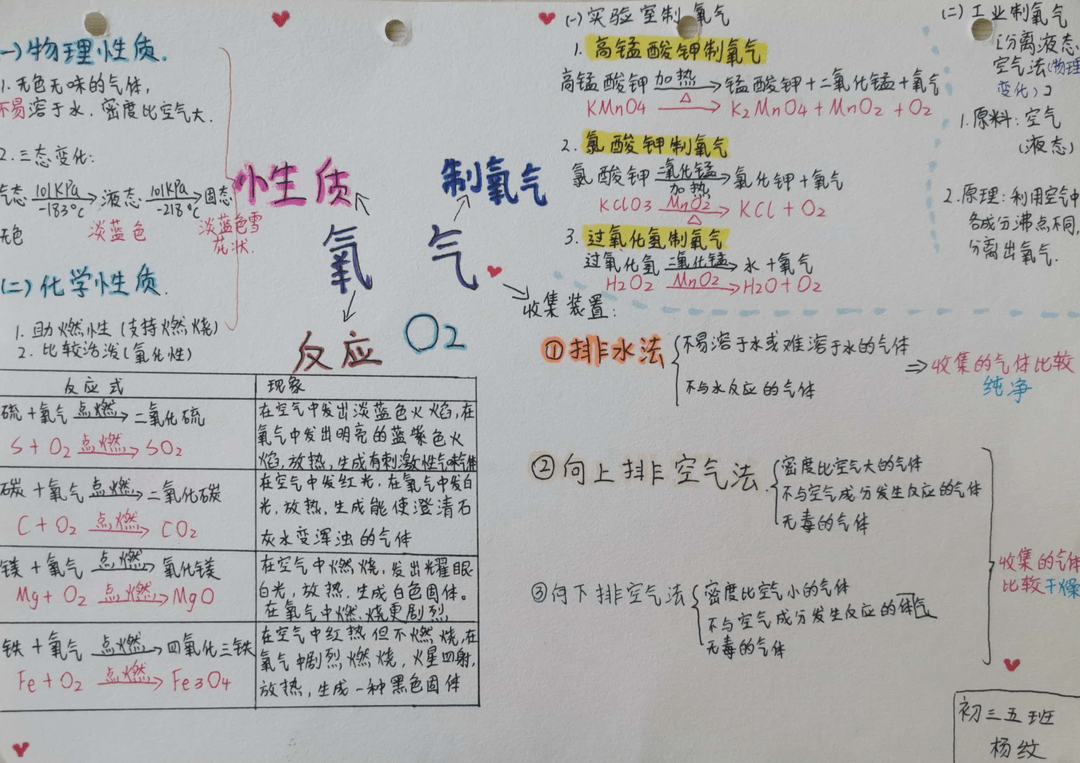 (一)物理性质.
1. 无色无味的气体,
不易溶于水. 密度比空气大.
2. 三态变化:
气态 101KPa -183℃ → 液态 101KPa -218℃ → 固态
无色 淡蓝色 淡蓝色雪
花状.
(二)化学性质.
1. 助燃性(支持燃烧)
2. 比较活泼(氧化性)
性质
制氧气
氧气
反应
O2
反应式 现象
硫+氧气 点燃 → 二氧化硫
S+O2 点燃 → SO2
在空气中发出淡蓝色火焰,在
氧气中发出明亮的蓝紫色火
焰,放热,生成有刺激性气味气体
碳+氧气 点燃 → 二氧化碳
C+O2 点燃 → CO2
在空气中发红光,在氧气中发白
光,放热,生成能使澄清石
灰水变浑浊的气体
镁+氧气 点燃 → 氧化镁
Mg+O2 点燃 → MgO
在空气中燃烧,发出耀眼
白光,放热,生成白色固体。
在氧气中燃烧更剧烈
铁+氧气 点燃 → 四氧化三铁
Fe+O2 点燃 → Fe3O4
在空气中红热但不燃烧,在
氧气中剧烈燃烧,火星四射,
放热,生成一种黑色固体
(一)实验室制氧气
1. 高锰酸钾制氧气
高锰酸钾 加热 → 锰酸钾+二氧化锰+氧气
KMnO4 △ → K2MnO4+MnO2+O2
2. 氯酸钾制氧气
氯酸钾 二氧化锰 加热 → 氯化钾+氧气
KClO3 MnO2 △ → KCl+O2
3. 过氧化氢制氧气
过氧化氢 二氧化锰 → 水+氧气
H2O2 MnO2 → H2O+O2
(二)工业制氧气
[分离液态
空气法(物理
变化)]
1. 原料:空气
(液态)
2. 原理:利用空气中
各成分沸点不同,
分离出氧气.
收集装置:
①排水法
不易溶于水或难溶于水的气体
不与水反应的气体
⇒收集的气体比较
纯净
②向上排空气法
密度比空气大的气体
不与空气成分发生反应的气体
无毒的气体
③向下排空气法
密度比空气小的气体
不与空气成分发生反应的体气
无毒的气体
收集的气体
比较干燥
初三五班
杨纹